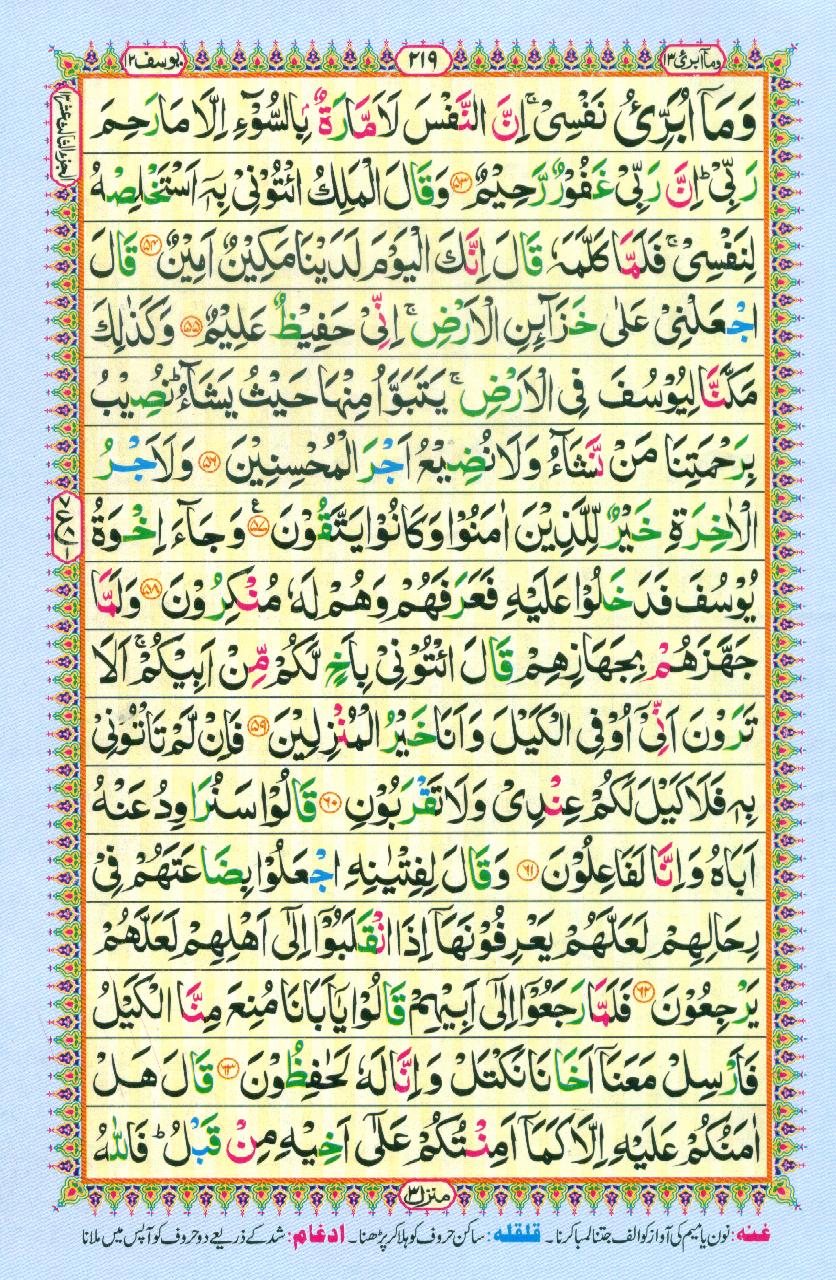 وما ابرئ ۱۳
۲۱۹
یوسف ۱۲
وَمَاۤ اُبَرِّئُ نَفْسِیْ ۚ اِنَّ النَّفْسَ لَاَمَّارَةٌۢ بِالسُّوْٓءِ اِلَّا مَا رَحِمَ
رَبِّیْ ؕ اِنَّ رَبِّیْ غَفُوْرٌ رَّحِیْمٌ ﴿۵۳﴾ وَقَالَ الْمَلِكُ ائْتُوْنِیْ بِهٖۤ اَسْتَخْلِصْهُ
لِنَفْسِیْ ۚ فَلَمَّا كَلَّمَهٗ قَالَ اِنَّكَ الْیَوْمَ لَدَیْنَا مَكِیْنٌ اَمِیْنٌ ﴿۵۴﴾ قَالَ
اجْعَلْنِیْ عَلٰی خَزَآىِٕنِ الْاَرْضِ ۚ اِنِّیْ حَفِیْظٌ عَلِیْمٌ ﴿۵۵﴾ وَكَذٰلِكَ
مَكَّنَّا لِیُوْسُفَ فِی الْاَرْضِ ۚ یَتَبَوَّاُ مِنْهَا حَیْثُ یَشَآءُ ؕ نُصِیْبُ
بِرَحْمَتِنَا مَنْ نَّشَآءُ وَلَا نُضِیْعُ اَجْرَ الْمُحْسِنِیْنَ ﴿۵۶﴾ وَلَاَجْرُ
الْاٰخِرَةِ خَیْرٌ لِّلَّذِیْنَ اٰمَنُوْا وَكَانُوْا یَتَّقُوْنَ ﴿۵۷﴾ ع وَجَآءَ اِخْوَةُ
یُوْسُفَ فَدَخَلُوْا عَلَیْهِ فَعَرَفَهُمْ وَهُمْ لَهٗ مُنْكِرُوْنَ ﴿۵۸﴾ وَلَمَّا
جَهَّزَهُمْ بِجَهَازِهِمْ قَالَ ائْتُوْنِیْ بِاَخٍ لَّكُمْ مِّنْ اَبِیْكُمْ ۚ اَلَا
تَرَوْنَ اَنِّیْۤ اُوْفِی الْكَیْلَ وَاَنَا خَیْرُ الْمُنْزِلِیْنَ ﴿۵۹﴾ فَاِنْ لَّمْ تَاْتُوْنِیْ
بِهٖ فَلَا كَیْلَ لَكُمْ عِنْدِیْ وَلَا تَقْرَبُوْنِ ﴿۶۰﴾ قَالُوْا سَنُرَاوِدُ عَنْهُ
اَبَاهُ وَاِنَّا لَفَاعِلُوْنَ ﴿۶۱﴾ وَقَالَ لِفِتْیٰنِهِ اجْعَلُوْا بِضَاعَتَهُمْ فِیْ
رِحَالِهِمْ لَعَلَّهُمْ یَعْرِفُوْنَهَاۤ اِذَا انْقَلَبُوْۤا اِلٰۤی اَهْلِهِمْ لَعَلَّهُمْ
یَرْجِعُوْنَ ﴿۶۲﴾ فَلَمَّا رَجَعُوْۤا اِلٰۤی اَبِیْهِمْ قَالُوْا یٰۤاَبَانَا مُنِعَ مِنَّا الْكَیْلُ
فَاَرْسِلْ مَعَنَاۤ اَخَانَا نَكْتَلْ وَاِنَّا لَهٗ لَحٰفِظُوْنَ ﴿۶۳﴾ قَالَ هَلْ
اٰمَنُكُمْ عَلَیْهِ اِلَّا كَمَاۤ اَمِنْتُكُمْ عَلٰۤی اَخِیْهِ مِنْ قَبْلُ ؕ فَاللّٰهُ
منزل ۳
غنه: نون یا میم کی آواز کو الف جتنا لمبا کرنا۔ قلقله: ساکن حروف کو ہلا کر پڑھنا۔ ادغام: شد کے ذریعے دو حروف کو آپس میں ملانا